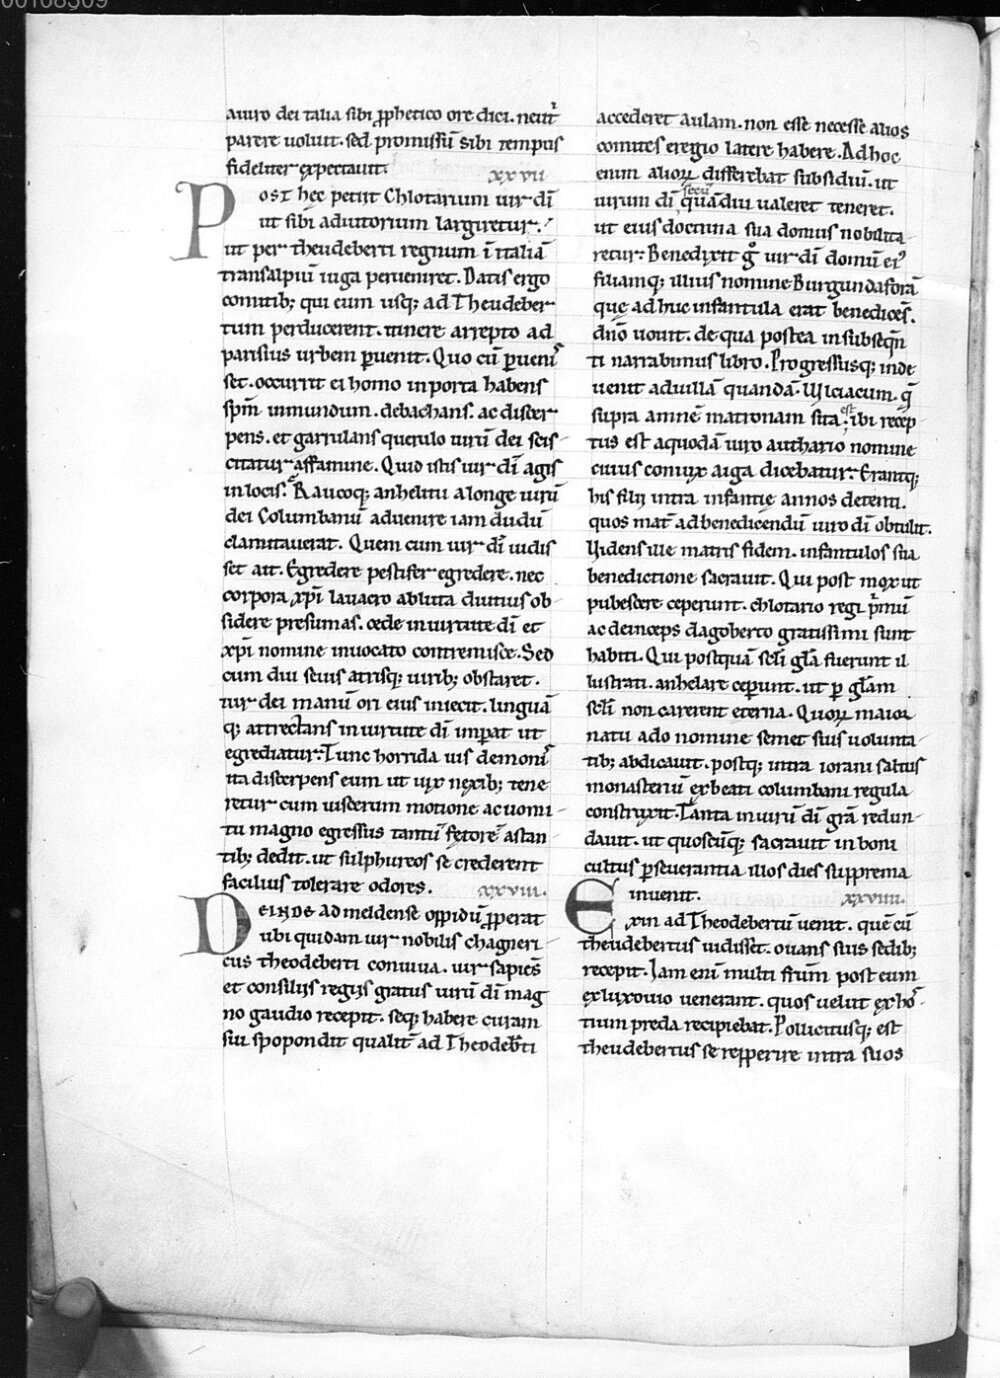 00108309
a uiro dei talia sibi ꝓphetico ore dici. neut᷑
parere uoluit. sed promissū sibi tempus
fideliter exspectauit.
xxvii
Post hęc petiit Chlotarium uir dī
ut sibi adiutorium largiretur.
ut per theudeberti regnum ī italiā
transalpiū iuga perueniret. Datis ergo
comitib; qui eum usq; ad Theudeber
tum perducerent. itinere arrepto ad
parisius urbem ꝑuenit. Quo cū ꝑueniſ
set. occurrit ei homo in porta habens
spm̄ inmundum. debachans. ac discer
pens. et garrulans querulo uirū dei scis-
citatur affamine. Quid istis uir dī agis
in locis. Raucoq; anhelitu a longe uirū
dei Columbanū aduenire iam dudū
clamitauerat. Quem cum uir dī uidis
set ait. Egredere pestifer egredere. nec
corpora xp̄i lauacro abluta diutius ob-
sidere presumas. cede in uirtute dī et
xp̄i nomine inuocato contremisce. Sed
cum diu seuis atrisq; uirib; obstaret.
uir dei manū ori eius iniecit. linguā
q; attrectans in uirtute dī imꝑat ut
egrediatur. Tunc horrida uis demoniſ
ita discerpens eum ut uix nexib; tene
retur cum uiscerum motione ac uomi-
tu magno egressus tantū fetorē astan
tib; dedit. ut sulphureos se crederent
facilius tolerare odores.
xxviii.
Deinde ad meldense oppidū ꝓperat
ubi quidam uir nobilis chagneri-
cus theodeberti conuiua. uir sapiēs
et consiliis regiis gratus uirū dī mag
no gaudio recepit. seq; habere curam
sui spopondit qualit᷑ ad Theodeb̄ti
accederet aulam. non esse necesse alios
comites e regio latere habere. Ad hoc
enim alioꝝ differebat subsidiū. ut
uirum dī secū quādiu ualeret teneret.
ut eius doctrina sua domus nobilita-
retur. Benedixit g̊ uir dī domū eiꝰ
filiamq; illius nomine Burgundaforā
que adhuc infantula erat benedicēs.
dn̄o uouit. de qua postea in subseq̄n
ti narrabimus libro. Progressusq; inde
uenit ad uillā quandā. Ulciacum. q̄
supra amnē matronam sita est. ibi recep
tus est a quodā uiro authario nomine
cuius coniux aiga dicebatur. Erantq;
his filii intra infantię annos detenti.
quos mat᷑ ad benedicendū uiro dī obtulit.
Uidens ille matris fidem. infantulos sua
benedictione sacrauit. Qui post mox ut
pubescere ceperunt. chlotario regi pͥmū
ac deinceps dagoberto gratissimi sunt
habiti. Qui postquā sc̄li gl̄a fuerunt il
lustrati. anhelare ceperunt. ut ꝑ gl̄am
sc̄li non carerent eterna. Quoꝝ maior
natu ado nomine semet suis uolunta-
tib; abdicauit. postq; intra iorani saltus
monasteriū ex beati columbani regula
construxit. Tanta in uirū dī gr̄a redun-
dauit. ut quoscūq; sacrauit in boni
cultus ꝑseuerantia illos dies supprema
inuenit.
xxviiii.
Exin ad Theodebertū uenit. quē cū
theudebertus uidisset. ouans suis sedib;
recepit. Iam enī multi fr̄um post eum
ex luxouio uenerant. quos uelut ex hoſ-
tium preda recipiebat. Pollicitusq; est
theudebertus se repperire intra suos